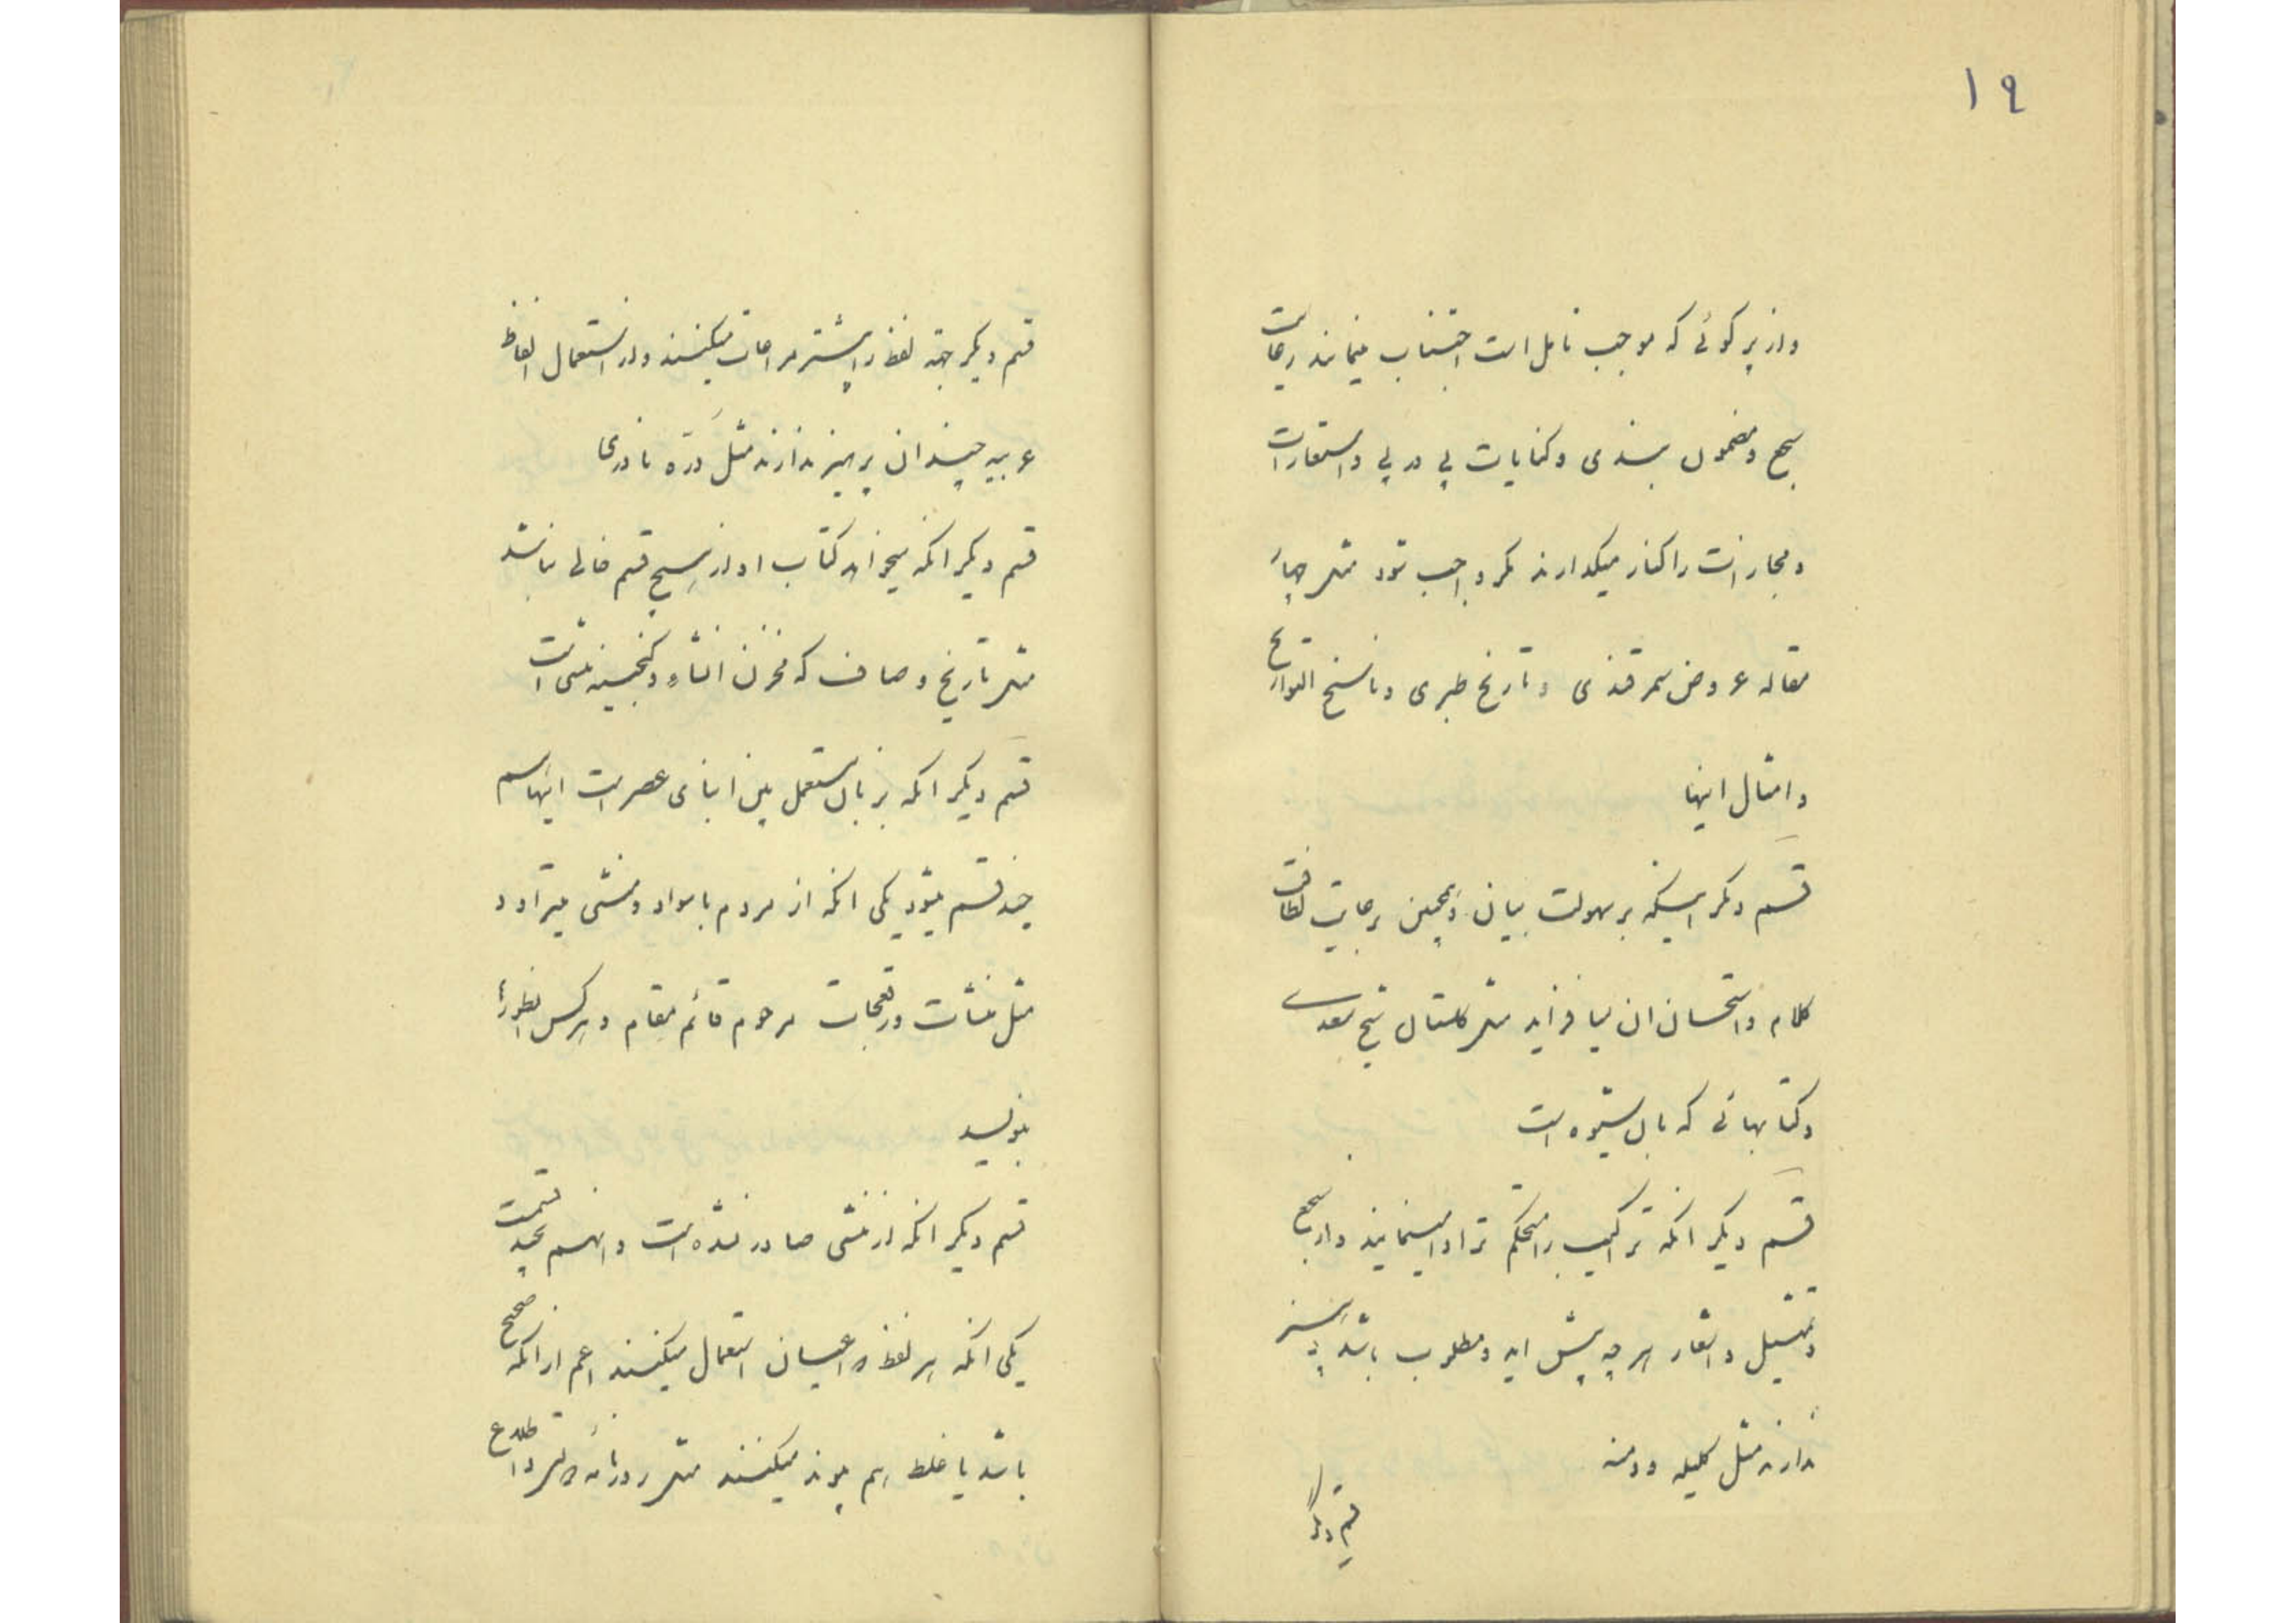 ۱۹
و از پر کوئی که موجب تامل است اجتناب مینمایند رعایت
سجع و مضمون بندی و کنایات پی در پی و استعارات
و مجازات را کنار میکذارند مکر واجب شود مثل چهار
مقاله عروض سمرقندی و تاریخ طبری و ناسخ التواریخ
و امثال اینها
قسم دیکر اینکه بر سهولت بیان و همچنین رعایت لطافت
کلام و استحسان ان میافزاید مثل کلستان شیخ سعدی
و کتابهائی که بان شیوه است
قسم دیکر انکه تراکیب را محکم تر ادا مینمایند و از سجع
و تمثیل و اشعار هر چه پیش اید و مطلوب باشد پرهیز
ندارند مثل کلیله و دمنه
قسم دیکر
قسم دیکر جنبه لفظ را بیشتر مراعات میکنند و از استعمال الفاظ
عربیه چندان پرهیز ندارند مثل دره نادری
قسم دیکر انکه میخواهد کتاب او از هیچ قسم خالی نباشد
مثل تاریخ وصاف که مخزن انشاء و کنجینه منشی است
قسم دیکر انکه بزبان مستعمل بین ابنای عصر است اینهم
چند قسم میشود یکی انکه از مردم باسواد و منشی میتراود
مثل منشات و رقعجات مرحوم قائم مقام و هر کس انطور
بنویسد
قسم دیکر انکه از منشی صادر نشده است و انهم بچند قسمت
یکی انکه هر لفظ را عیان استعمال میکنند اعم از انکه صحیح
باشد یا غلط بهم پیوند میکنند مثل روزنامه اطلاع